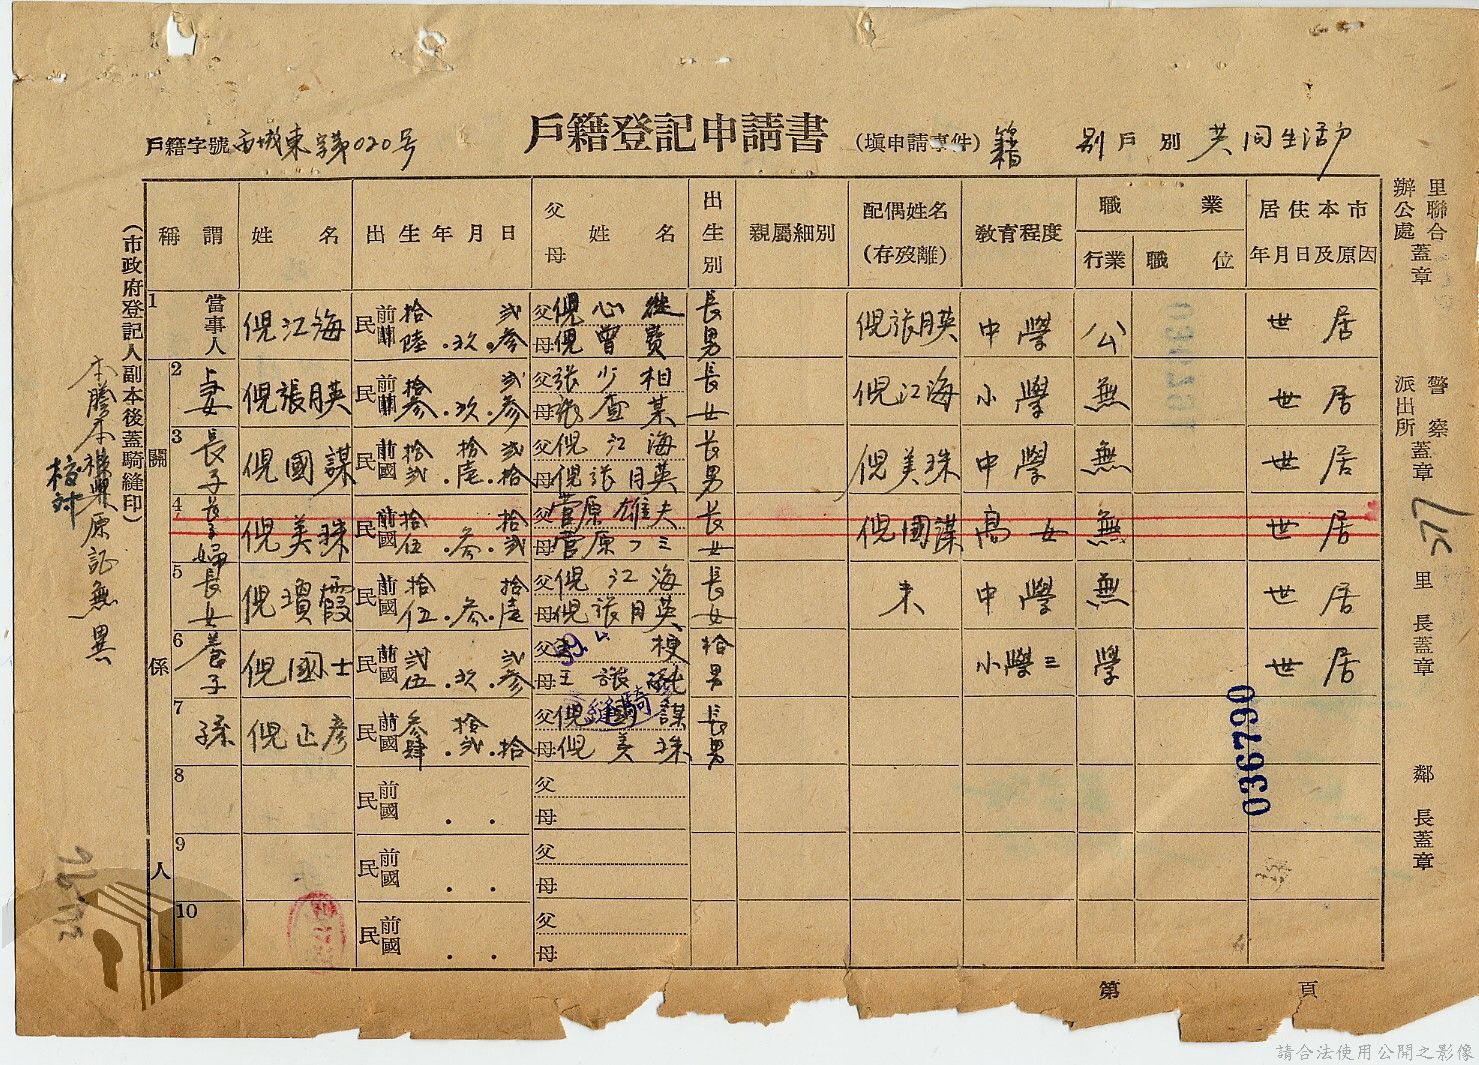 戶籍登記申請書
戶籍字號 市城東字第020号
(填申請事件) 籍 別戶別 共同生活戶
稱謂 姓名 出生年月日 父母姓名 出生別 親屬細別 配偶姓名(存歿離) 教育程度 職業 行業 職位 居住本市年月日及原因
1 當事人 倪江海 民前國 拾陸.玖.貳參 父倪心 母倪曾 長男 倪張月英 中學 公 世居
2 妻 倪張月英 民前國 拾參.玖.貳參 父張少相 母張查某 長女 倪江海 小學 無 世居
3 長子 倪國謀 民前國 拾貳.拾壹.貳拾 父倪江海 母倪張月英 長男 倪美珠 中學 無 世居
4 媳婦 倪美珠 民前國 拾伍.參.拾貳 父菅原雄夫 母菅原フミ 長女 倪國謀 高女 無 世居
5 長女 倪瓊霞 民前國 拾伍.參.拾壹 父倪江海 母倪張月英 長女 未 中學 無 世居
6 養子 倪國士 民前國 貳伍.玖.貳參 父 母王 拾男 小學三 學 世居
7 孫 倪正彥 民前國 參肆.拾貳.拾 父倪國謀 母倪美珠 長男
8 民前國 . . 父 母
9 民前國 . . 父 母
10 民前國 . . 父 母
關係人
(市政府登記人副本後蓋騎縫印)
本謄本核與原記無異
校對
里聯合辦公處蓋章
警察派出所蓋章
里長蓋章
鄰長蓋章
騎縫
0367790
第 頁
請合法使用公開之影像